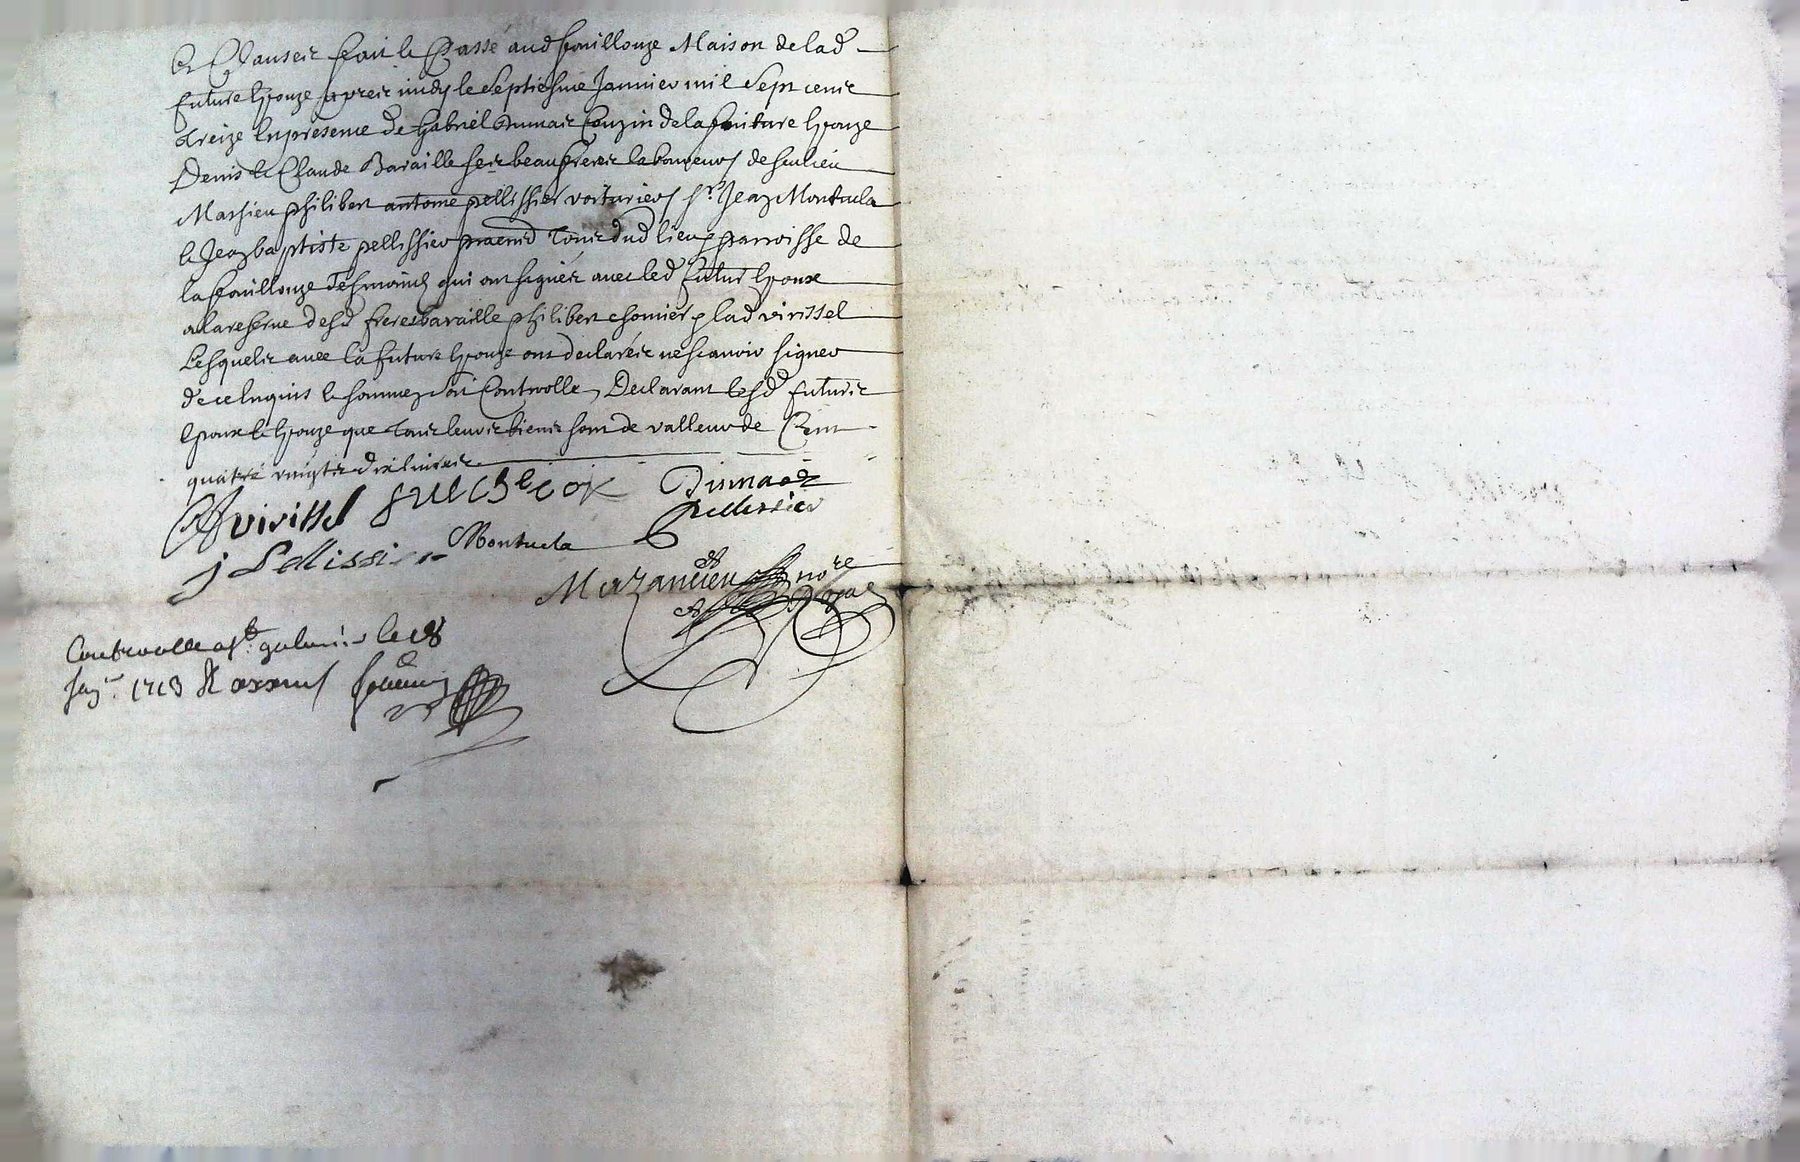 et Clauses fait et Passé aud fouillouze Maison de lad
future Epouze apres midy le septiesme Janvier mil Sept cents
treize En presence de Gabriel Dumas Couzin de la future Epouze
Denis et Claude Baraille ses beaufreres laboureurs de
Mathieu philibert antoine pellissier voiturier Sr Jean Montuela
et Jean baptiste pellissier tous dud lieu parroisse de
la fouillouze tesmoins qui ont signés avec led futur Epoux
a la reserve desd freres baraille philibert chomier lad virissel
Lesquels avec la future Epouze ont declarés ne scavoir signer
de ce Enquis et sommez soit Controllé, Declarant lesd futurs
Epoux et Epouze que tous leurs biens sont de valleur de Cent
quatre vingts dix livres
virissel Dumas
pellissier
j Pellissier Montuela
Mazancieu nore
Royal
Controolle a st galmier le 18
Janr. 1713 R